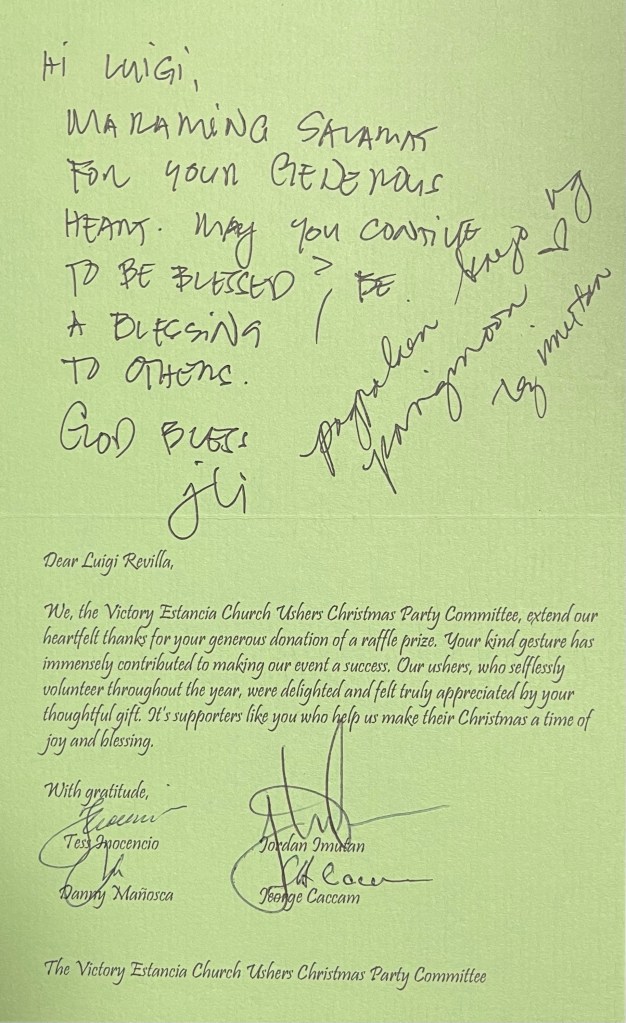 Hi LUIGI,
MARAMING SALAMAT
FOR YOUR GENEROUS
HEART. MAY YOU CONTINUE
TO BE BLESSED & BE
A BLESSING
TO OTHERS.
GOD BLESS
pagpalain kayo ng
panginoon
Dear Luigi Revilla,
We, the Victory Estancia Church Ushers Christmas Party Committee, extend our
heartfelt thanks for your generous donation of a raffle prize. Your kind gesture has
immensely contributed to making our event a success. Our ushers, who selflessly
volunteer throughout the year, were delighted and felt truly appreciated by your
thoughtful gift. It's supporters like you who help us make their Christmas a time of
joy and blessing.
With gratitude,
Tess Inocencio
Jordan Imutan
Danny Mañosca
George Caccam
The Victory Estancia Church Ushers Christmas Party Committee